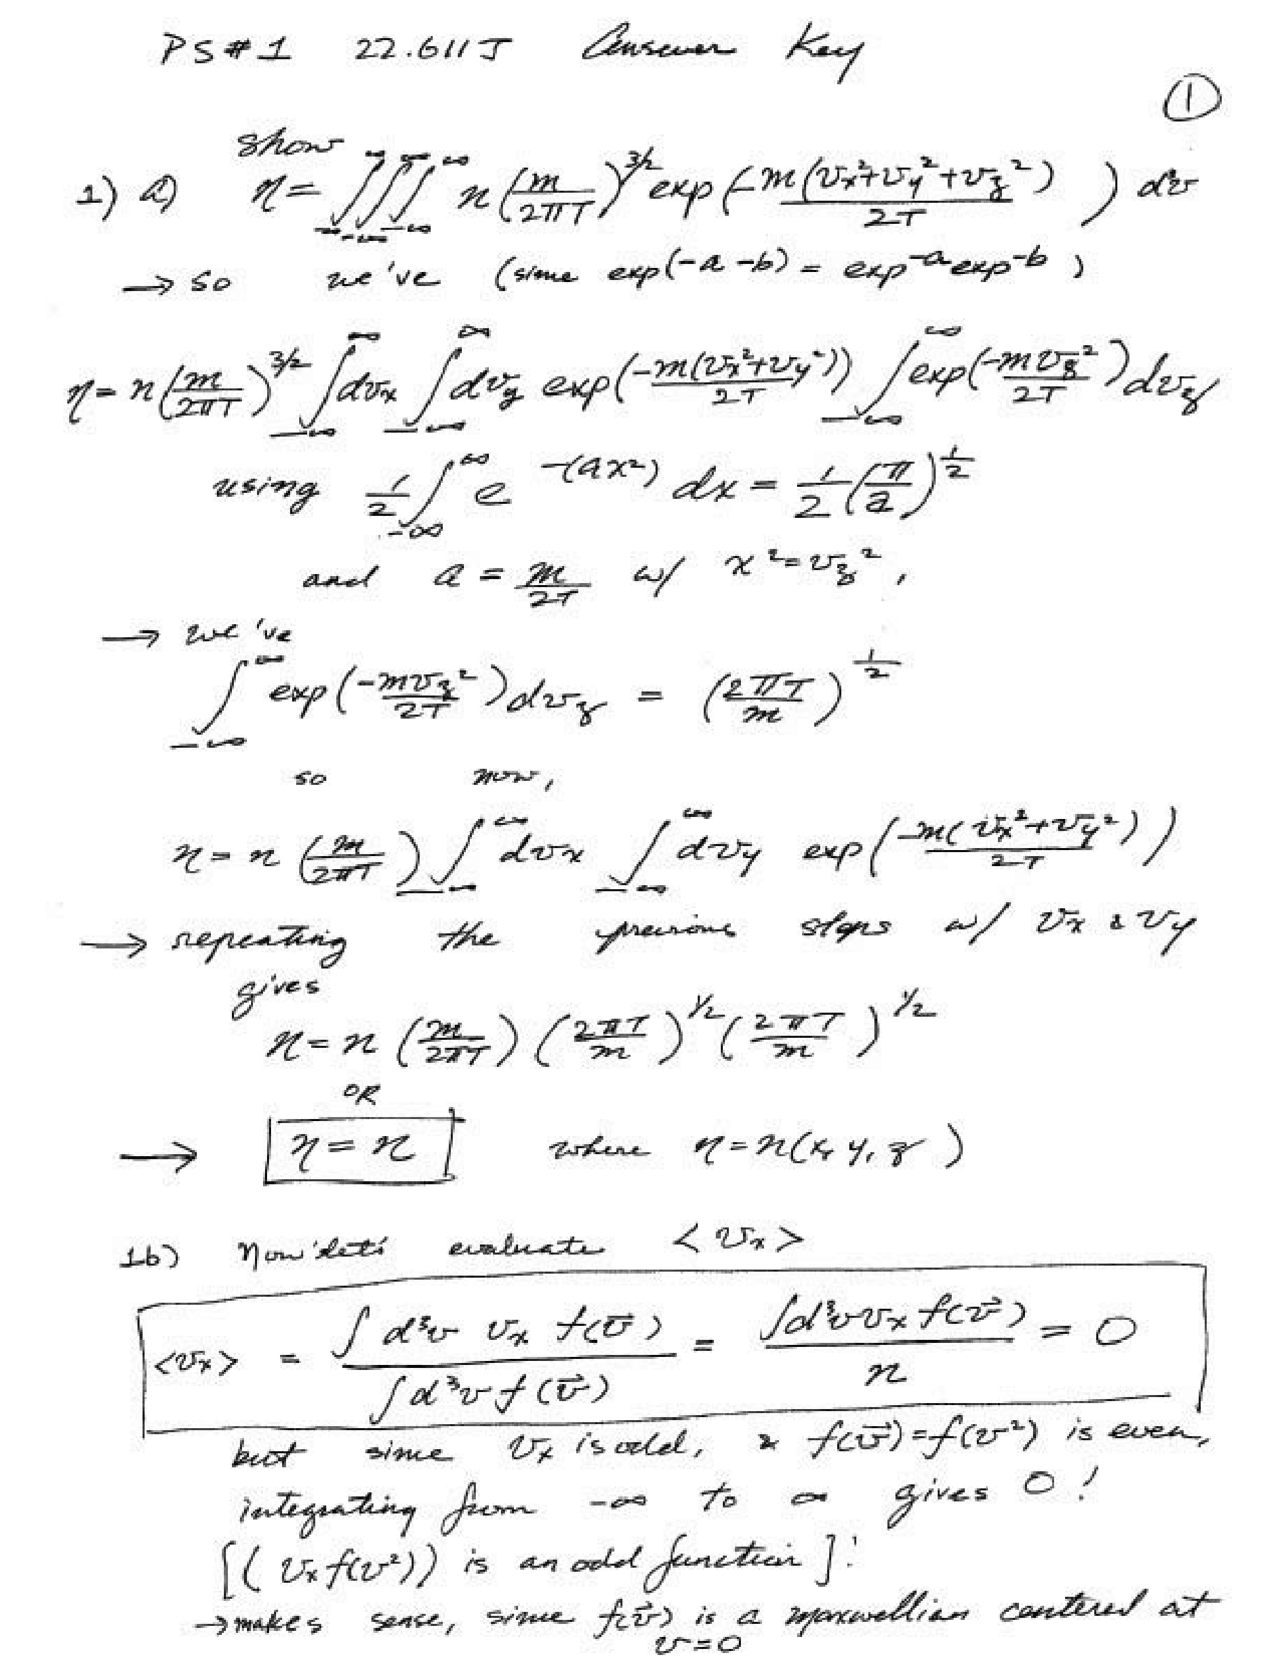 PS#1 22.611J Answer Key
①
show
1) a) n = ∫∫∫_{-∞}^{∞} n (m/2πT)^{3/2} exp(-m(v_x²+v_y²+v_z²)/2T) d³v
→ so we've (since exp(-a-b) = exp^{-a} exp^{-b})
n = n (m/2πT)^{3/2} ∫_{-∞}^{∞} dv_x ∫_{-∞}^{∞} dv_y exp(-m(v_x²+v_y²)/2T) ∫_{-∞}^{∞} exp(-mv_z²/2T) dv_z
using 1/2 ∫_{-∞}^{∞} e^{-(ax²)} dx = 1/2 (π/a)^{1/2}
and a = m/2T w/ x² = v_z²,
→ we've
∫_{-∞}^{∞} exp(-mv_z²/2T) dv_z = (2πT/m)^{1/2}
so now,
n = n (m/2πT) ∫_{-∞}^{∞} dv_x ∫_{-∞}^{∞} dv_y exp(-m(v_x²+v_y²)/2T)
→ repeating the previous steps w/ v_x & v_y
gives
n = n (m/2πT) (2πT/m)^{1/2} (2πT/m)^{1/2}
OR
→ n = n where n = n(x, y, z)
1b) Now let's evaluate <v_x>
<v_x> = ∫d³v v_x f(v⃗) / ∫d³v f(v⃗) = ∫d³v v_x f(v⃗) / n = 0
but since v_x is odd, & f(v⃗) = f(v²) is even,
integrating from -∞ to ∞ gives 0!
[(v_x f(v²)) is an odd function]!
→ makes sense, since f(v⃗) is a maxwellian centered at
v=0